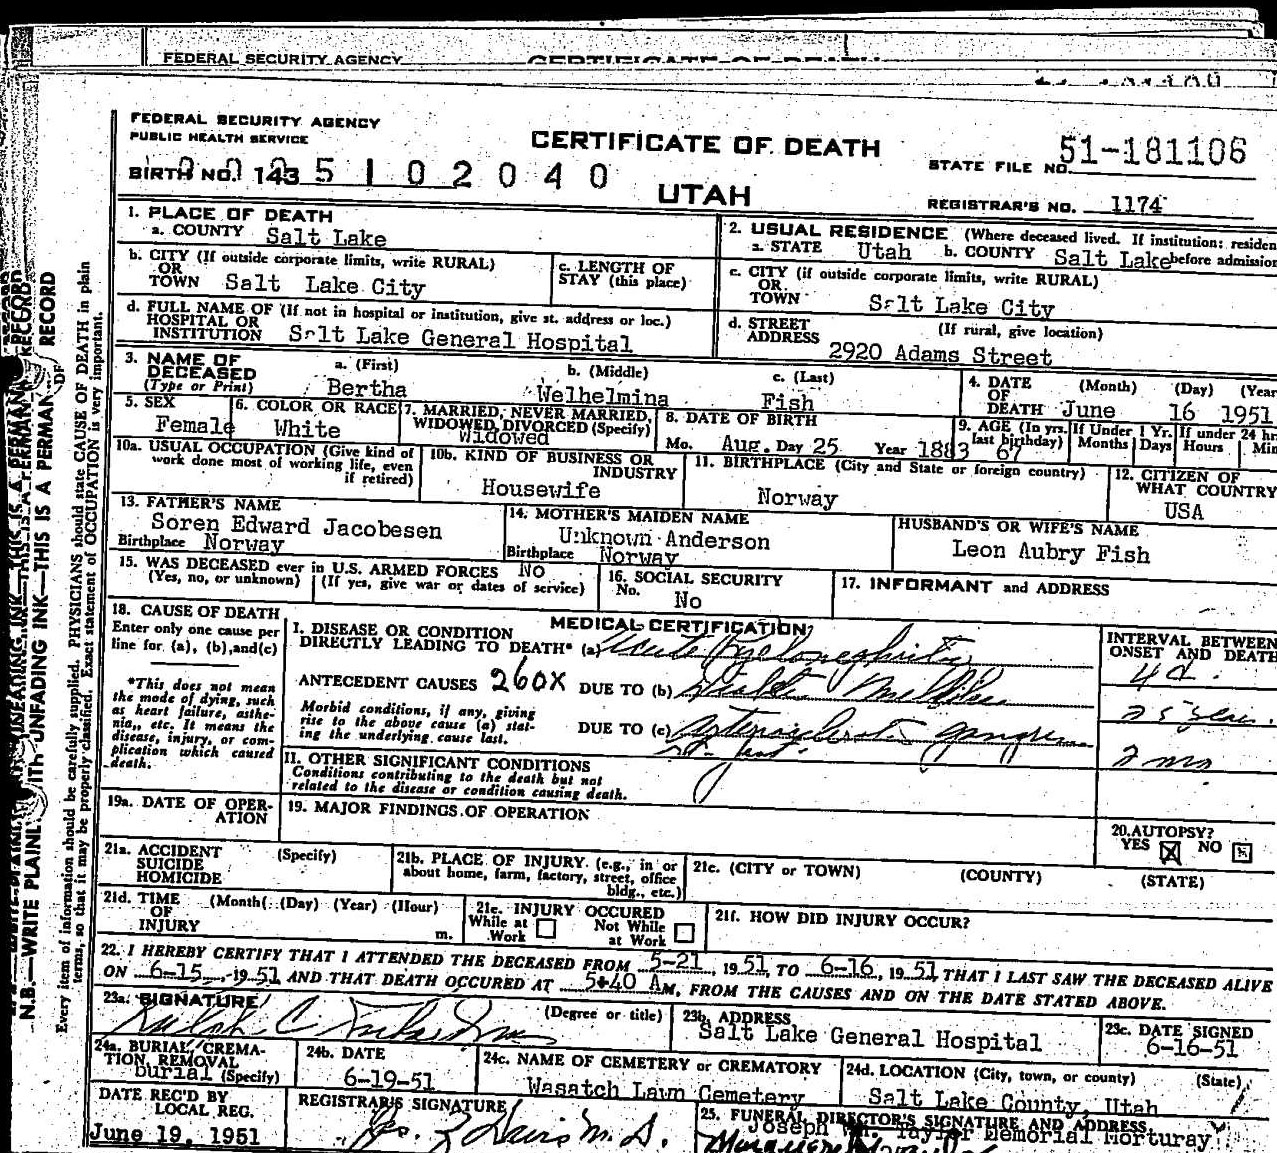 FEDERAL SECURITY AGENCY
FEDERAL SECURITY AGENCY
PUBLIC HEALTH SERVICE
CERTIFICATE OF DEATH
UTAH
STATE FILE NO. 51-181106
BIRTH NO. 143 5 1 0 2 0 4 0
REGISTRAR'S NO. 1174
1. PLACE OF DEATH
a. COUNTY Salt Lake
b. CITY (If outside corporate limits, write RURAL)
OR
TOWN Salt Lake City
c. LENGTH OF
STAY (this place)
d. FULL NAME OF (If not in hospital or institution, give st. address or loc.)
HOSPITAL OR
INSTITUTION Salt Lake General Hospital
2. USUAL RESIDENCE (Where deceased lived. If institution: residen
a. STATE Utah b. COUNTY Salt Lake before admission
c. CITY (if outside corporate limits, write RURAL)
OR
TOWN Salt Lake City
d. STREET (If rural, give location)
ADDRESS 2920 Adams Street
3. NAME OF
DECEASED
(Type or Print)
a. (First) b. (Middle) c. (Last)
Bertha Welhelmina Fish
4. DATE (Month) (Day) (Year
OF
DEATH June 16 1951
5. SEX
Female
6. COLOR OR RACE
White
7. MARRIED, NEVER MARRIED,
WIDOWED, DIVORCED (Specify)
Widowed
8. DATE OF BIRTH
Mo. Aug. Day 25 Year 1883
9. AGE (In yrs.
last birthday) 67
If Under 1 Yr.
Months Days
If under 24 hr
Hours Min
10a. USUAL OCCUPATION (Give kind of
work done most of working life, even
if retired)
10b. KIND OF BUSINESS OR
INDUSTRY
Housewife
11. BIRTHPLACE (City and State or foreign country)
Norway
12. CITIZEN OF
WHAT COUNTRY
USA
13. FATHER'S NAME
Soren Edward Jacobesen
Birthplace Norway
14. MOTHER'S MAIDEN NAME
Unknown Anderson
Birthplace Norway
HUSBAND'S OR WIFE'S NAME
Leon Aubry Fish
15. WAS DECEASED ever in U.S. ARMED FORCES No
(Yes, no, or unknown) (If yes, give war or dates of service)
16. SOCIAL SECURITY
No.
No
17. INFORMANT and ADDRESS
18. CAUSE OF DEATH
Enter only one cause per
line for (a), (b), and (c)
*This does not mean
the mode of dying, such
as heart failure, asthe-
nia, etc. It means the
disease, injury, or com-
plication which caused
death.
MEDICAL CERTIFICATION
I. DISEASE OR CONDITION
DIRECTLY LEADING TO DEATH* (a) Acute Pyelonephritis
ANTECEDENT CAUSES 260X DUE TO (b) Diabetes Mellitus
Morbid conditions, if any, giving
rise to the above cause (a) stat-
ing the underlying cause last.
DUE TO (c) arteriosclerotic gangrene
rt. foot.
INTERVAL BETWEEN
ONSET AND DEATH
4 d.
25 years
2 mo
II. OTHER SIGNIFICANT CONDITIONS
Conditions contributing to the death but not
related to the disease or condition causing death.
19a. DATE OF OPER-
ATION
19. MAJOR FINDINGS OF OPERATION
20. AUTOPSY?
YES NO
21a. ACCIDENT (Specify)
SUICIDE
HOMICIDE
21b. PLACE OF INJURY (e.g., in or
about home, farm, factory, street, office
bldg., etc.)
21c. (CITY or TOWN) (COUNTY) (STATE)
21d. TIME (Month) (Day) (Year) (Hour)
OF
INJURY m.
21e. INJURY OCCURED
While at Not While
Work at Work
21f. HOW DID INJURY OCCUR?
22. I HEREBY CERTIFY THAT I ATTENDED THE DECEASED FROM 5-21, 1951, TO 6-16, 1951 THAT I LAST SAW THE DECEASED ALIVE
ON 6-15, 1951 AND THAT DEATH OCCURED AT 5:40 AM, FROM THE CAUSES AND ON THE DATE STATED ABOVE.
23a. SIGNATURE (Degree or title)
Ralph C.
23b. ADDRESS
Salt Lake General Hospital
23c. DATE SIGNED
6-16-51
24a. BURIAL, CREMA-
TION, REMOVAL
burial (Specify)
24b. DATE
6-19-51
24c. NAME OF CEMETERY or CREMATORY
Wasatch Lawn Cemetery
24d. LOCATION (City, town, or county) (State)
Salt Lake County, Utah
DATE REC'D BY
LOCAL REG.
June 19, 1951
REGISTRAR'S SIGNATURE
25. FUNERAL DIRECTOR'S SIGNATURE AND ADDRESS
Joseph Wm. Taylor Memorial Morturay
N.B.—WRITE PLAINLY WITH UNFADING INK—THIS IS A PERMANENT RECORD
Every item of information should be carefully supplied. PHYSICIANS should state CAUSE OF DEATH in plain
terms, so that it may be properly classified. Exact statement of OCCUPATION is very important.